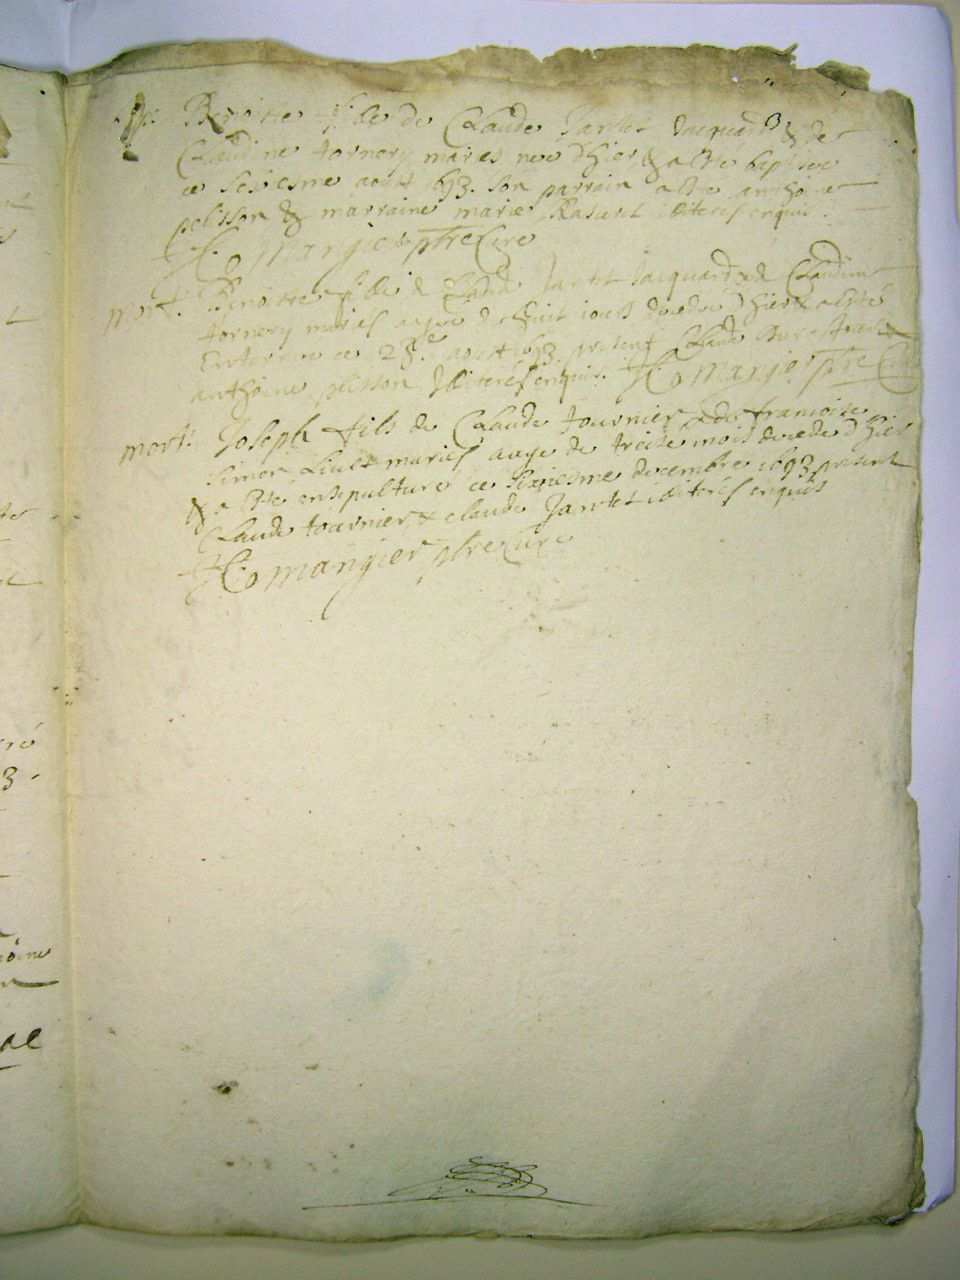 Benoitte fille de Claude Jantet Jacquard & de
Claudine tornery maries nee d'hier & a esté baptisee
ce sesiesme aoust 1693. son parrain a esté anthoine
pelisson & marraine marie illiteres enquis.
mangier pbre Cure
mort. Benoitte fille de Claude Jantet Jacquard & de Claudine
tornery maries agee de huit jours decedee d'hier a esté
Enterree ce aoust 1693. present Claude
anthoine pelisson illiteres enquis. mangier pbre Cure
mort. Joseph fils de Claude tournier & de francoise
maries aage de treize mois decede d'hier
& a esté ensepulturé ce sixiesme decembre 1693 present
Claude tournier & claude Jantet illiteres enquis
mangier pbre Cure
ré
3.
oine